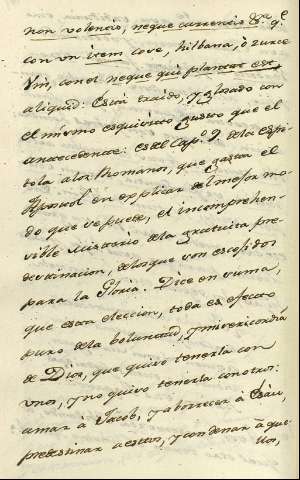 non volentis, neque currentis &ª qᵉ
con un item cose, hilbana, ó zurce
Vm, con el neque qui plantat est
aliquid. Está traido, y glosado con
el mismo esquisito gusto que el
antecedente: es el Cap.º 9. de la epis-
tola a los Rhomanos, que gasta el
Apostol en explicar del mejor mo-
do que se puede, el incomprehen-
sible misterio de la gratuita pre-
destinacion, de los que son escojidos
para la Gloria. Dice en suma,
que esta eleccion, toda es efecto
puro de la boluntad, y misericordia
de Dios, que quiso tenerla con
unos, y no quiso tenerla con otros:
amar à Jacob, y aborrecer à Esàu,
predestinar a estos, y condenar à que-
llos,